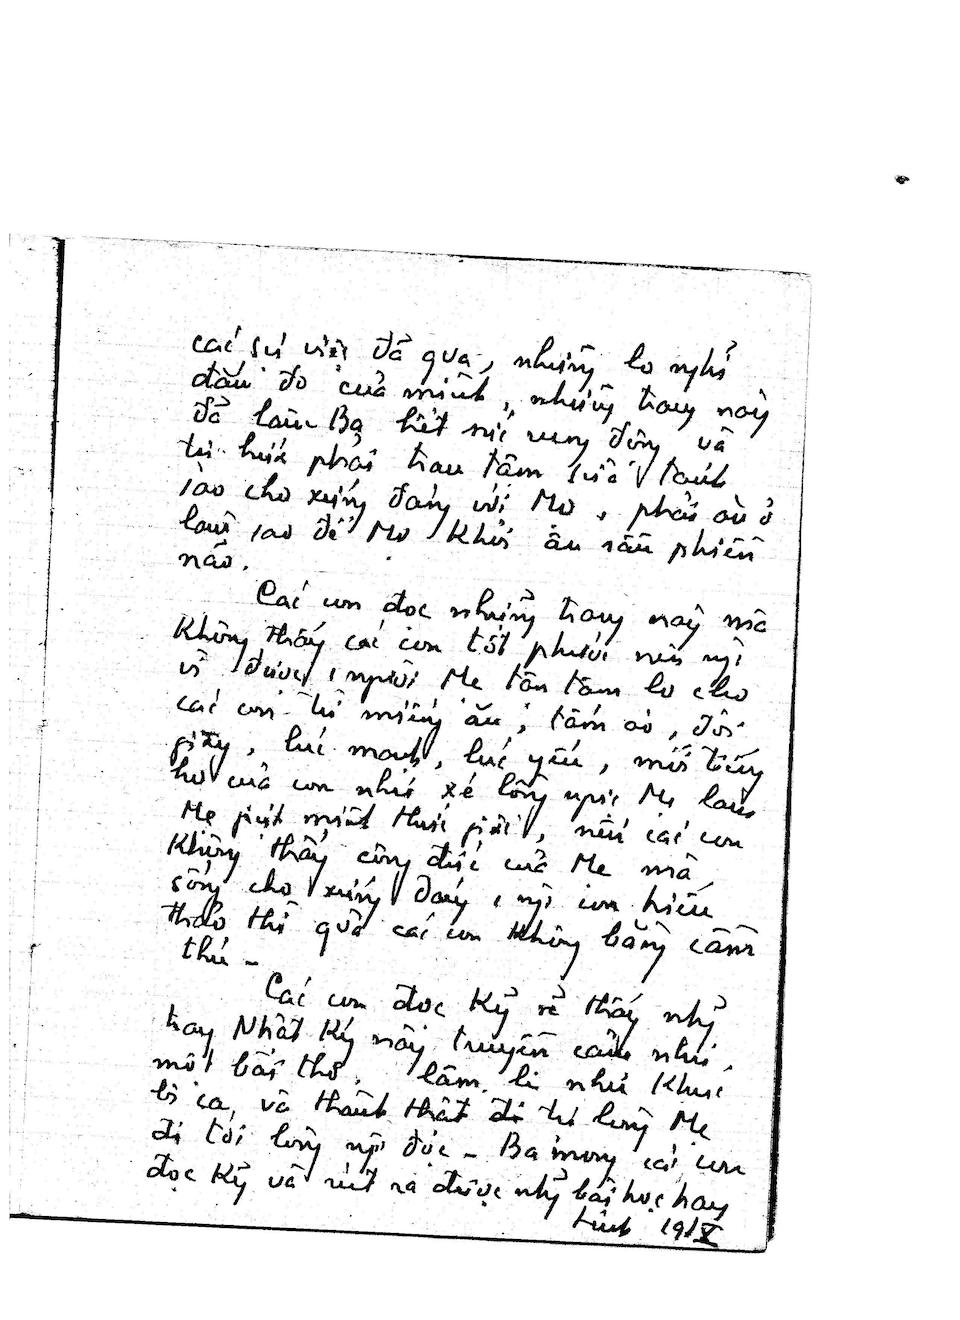 các sự việc đã qua, những lo nghĩ
đắn đo của mình, những trang này
đã làm Ba hết sức rung động và
tự hứa phải trau tâm sửa tánh
sao cho xứng đáng với Mẹ, phải ăn ở
làm sao để Mẹ khỏi âu sầu phiền
não.
Các con đọc những trang này mà
không thấy các con tốt phước nên
vì được 1 người Mẹ tận tâm lo cho
các con từ miếng ăn, tấm áo, đôi
giày, lúc mạnh, lúc yếu, mỗi tiếng
ho của con như xé lồng ngực Mẹ làm
Mẹ giựt mình thức giấc, nếu các con
không thấy công đức của Mẹ mà
sống cho xứng đáng 1 ng con hiếu
thảo thì quả các con không bằng cầm
thú -
Các con đọc kỹ sẽ thấy nhg
trang Nhật Ký nầy truyền cảm như
một bài thơ, lâm li như khúc
bi ca, và thành thật đi từ lòng Mẹ
đi tới lòng ng đọc - Ba mong các con
đọc kỹ và rút ra được nhg bài học hay
19/X